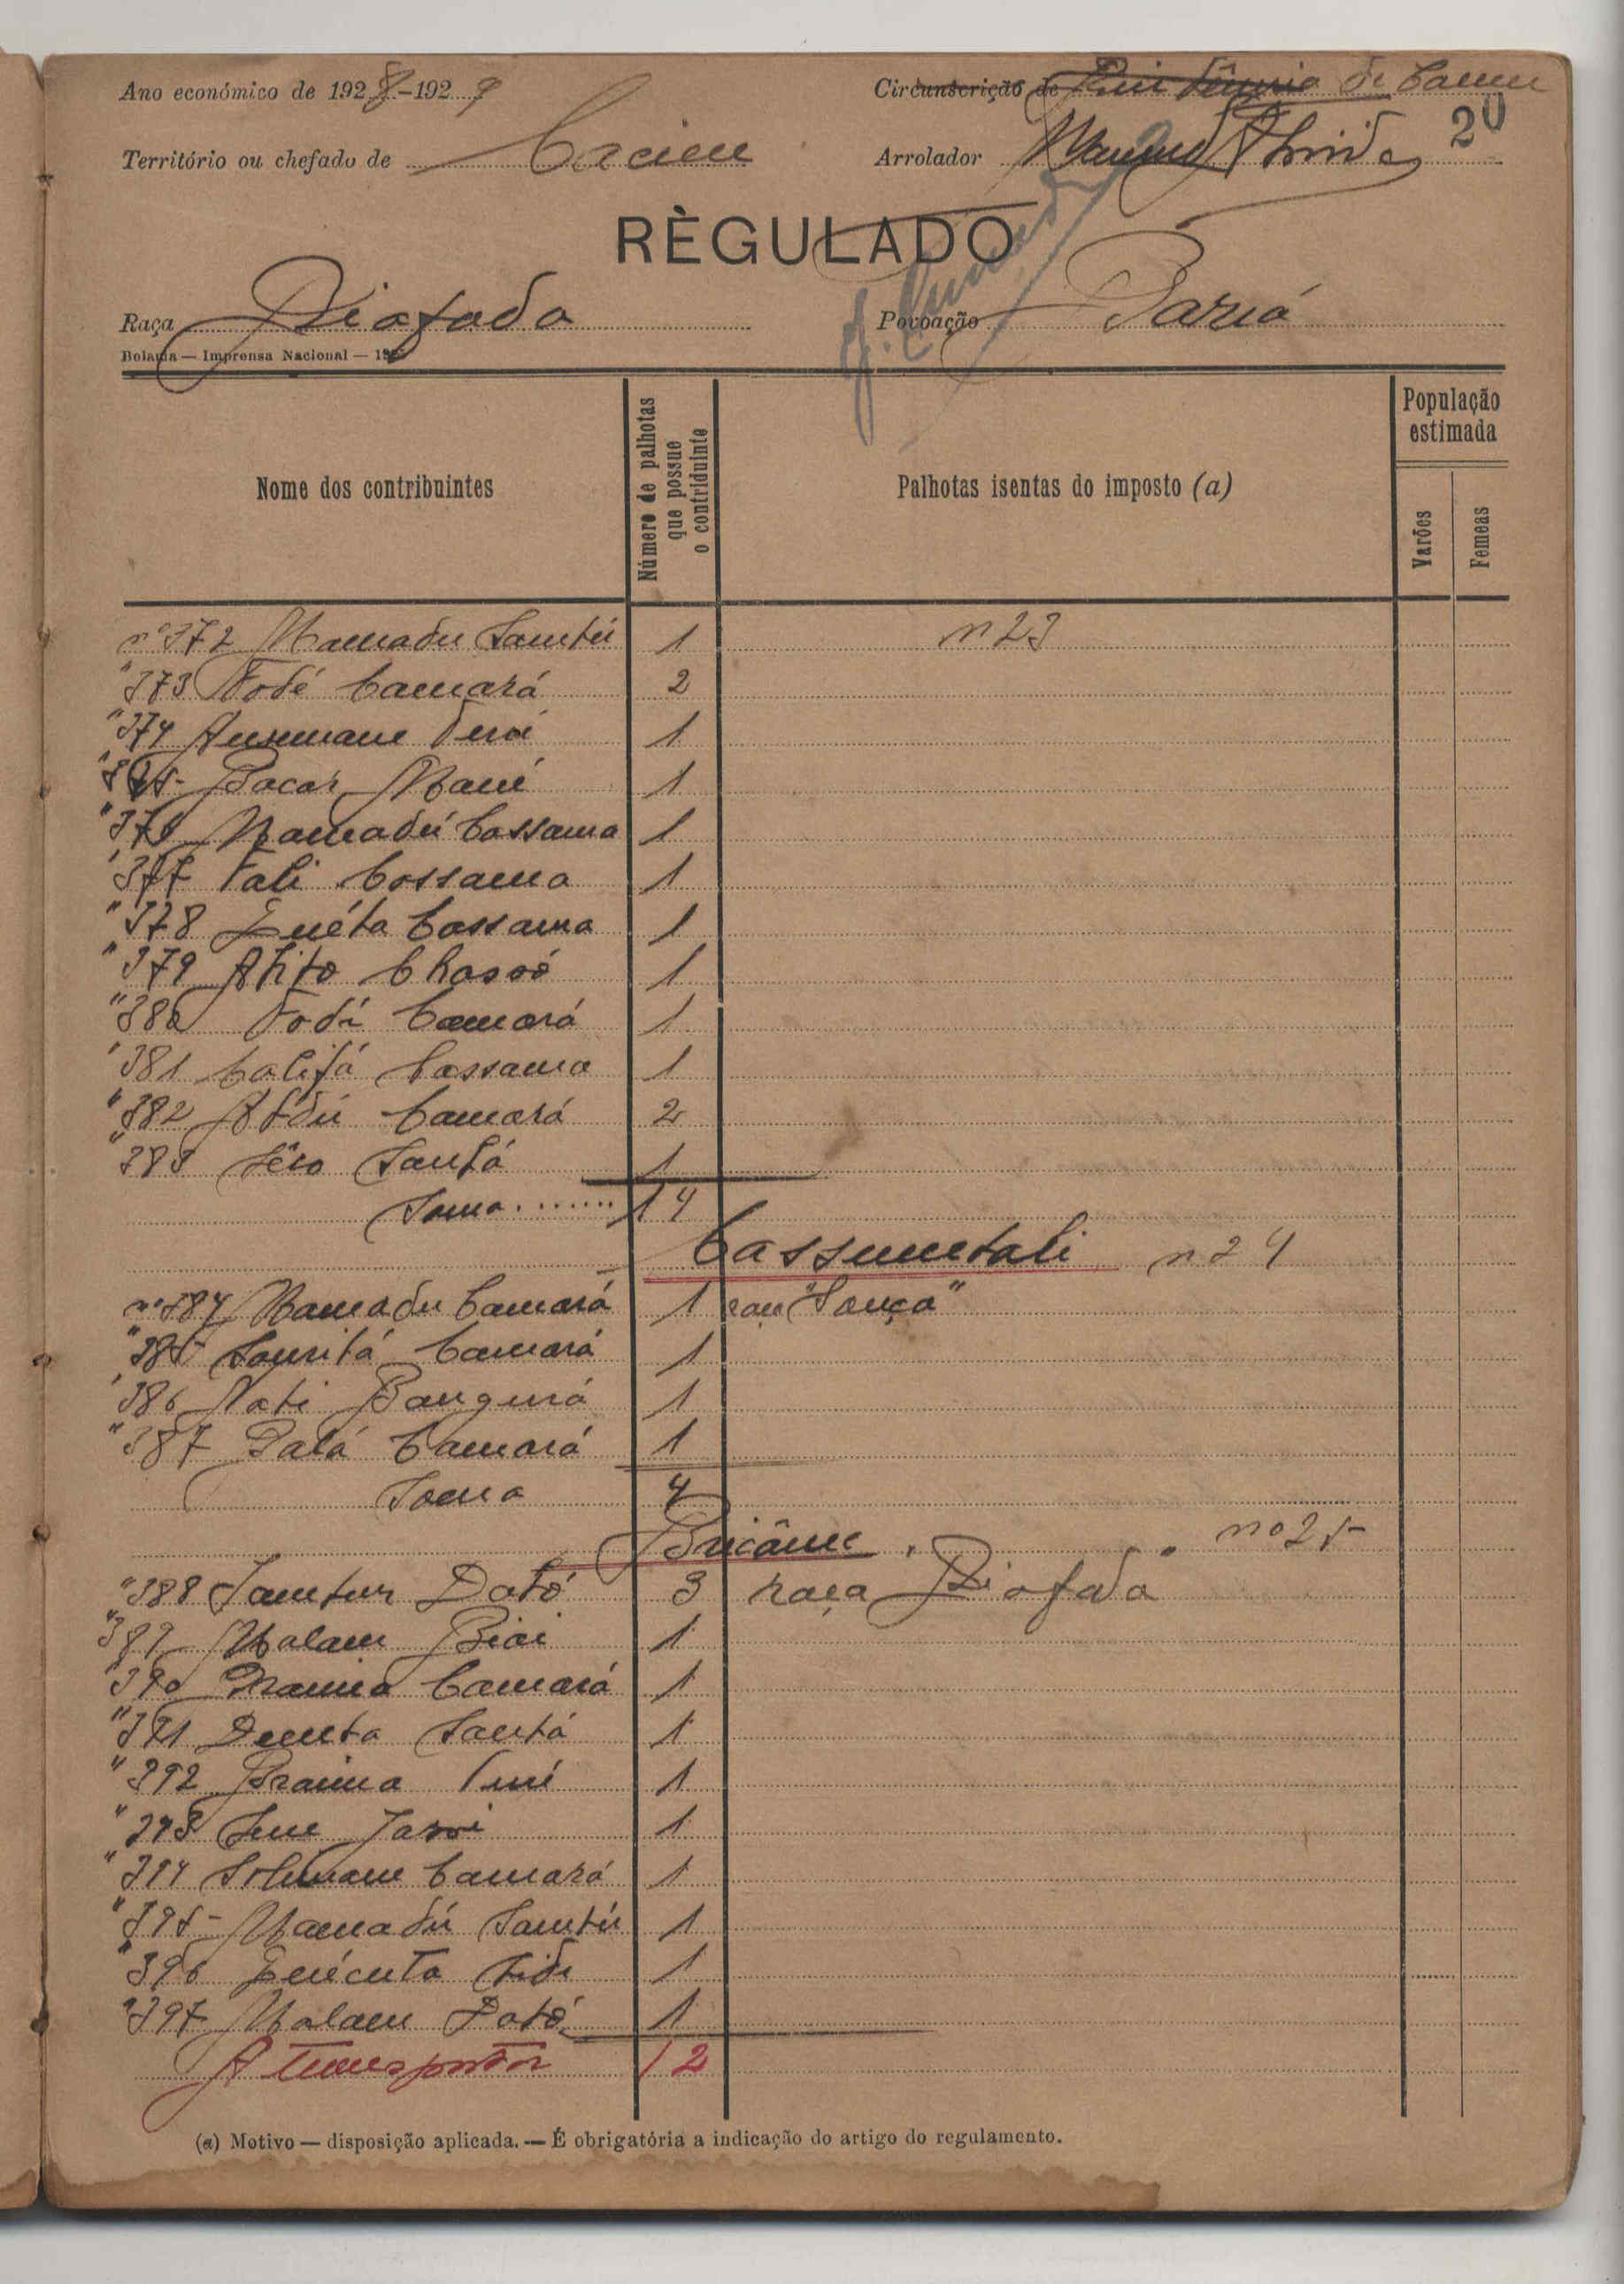 Ano económico de 1928-1929
Circunscrição de de Cacine
20
Território ou chefado de Cacine
Arrolador
RÈGULADO
Raça Biafada
Povoação Pariá
Bolama — Imprensa Nacional — 192
Nome dos contribuintes
Número de palhotas que possue o contriduinte
Palhotas isentas do imposto (a)
População estimada
Varões
Femeas
nº 372 Mamadu Sambú 1 n 23
" 373 Fodé Camará 2
" 374 Ansumane Turé 1
" 375 Bacar Mané 1
" 376 Mamadú Cassama 1
" 377 Fali Cassama 1
" 378 Cassama 1
" 379 1
" 380 Fodé Camará 1
" 381 Califá Cassama 1
" 382 Abdú Camará 2
" 383 1
Soma ....... 14
n 24
nº 384 Mamadu Camará 1 raça "
" 385 Camará 1
" 386 Bangurá 1
" 387 Camará 1
Soma 4
nº 25
" 388 Dabó 3 raça Biafada
" 389 Malam Biai 1
" 390 Braima Camará 1
" 391 1
" 392 Braima Turé 1
" 393 1
" 394 Solimane Camará 1
" 395 Mamadú Sambú 1
" 396 Sidi 1
" 397 Malam Dabó 1
A transportar 12
(a) Motivo — disposição aplicada. — É obrigatória a indicação do artigo do regulamento.